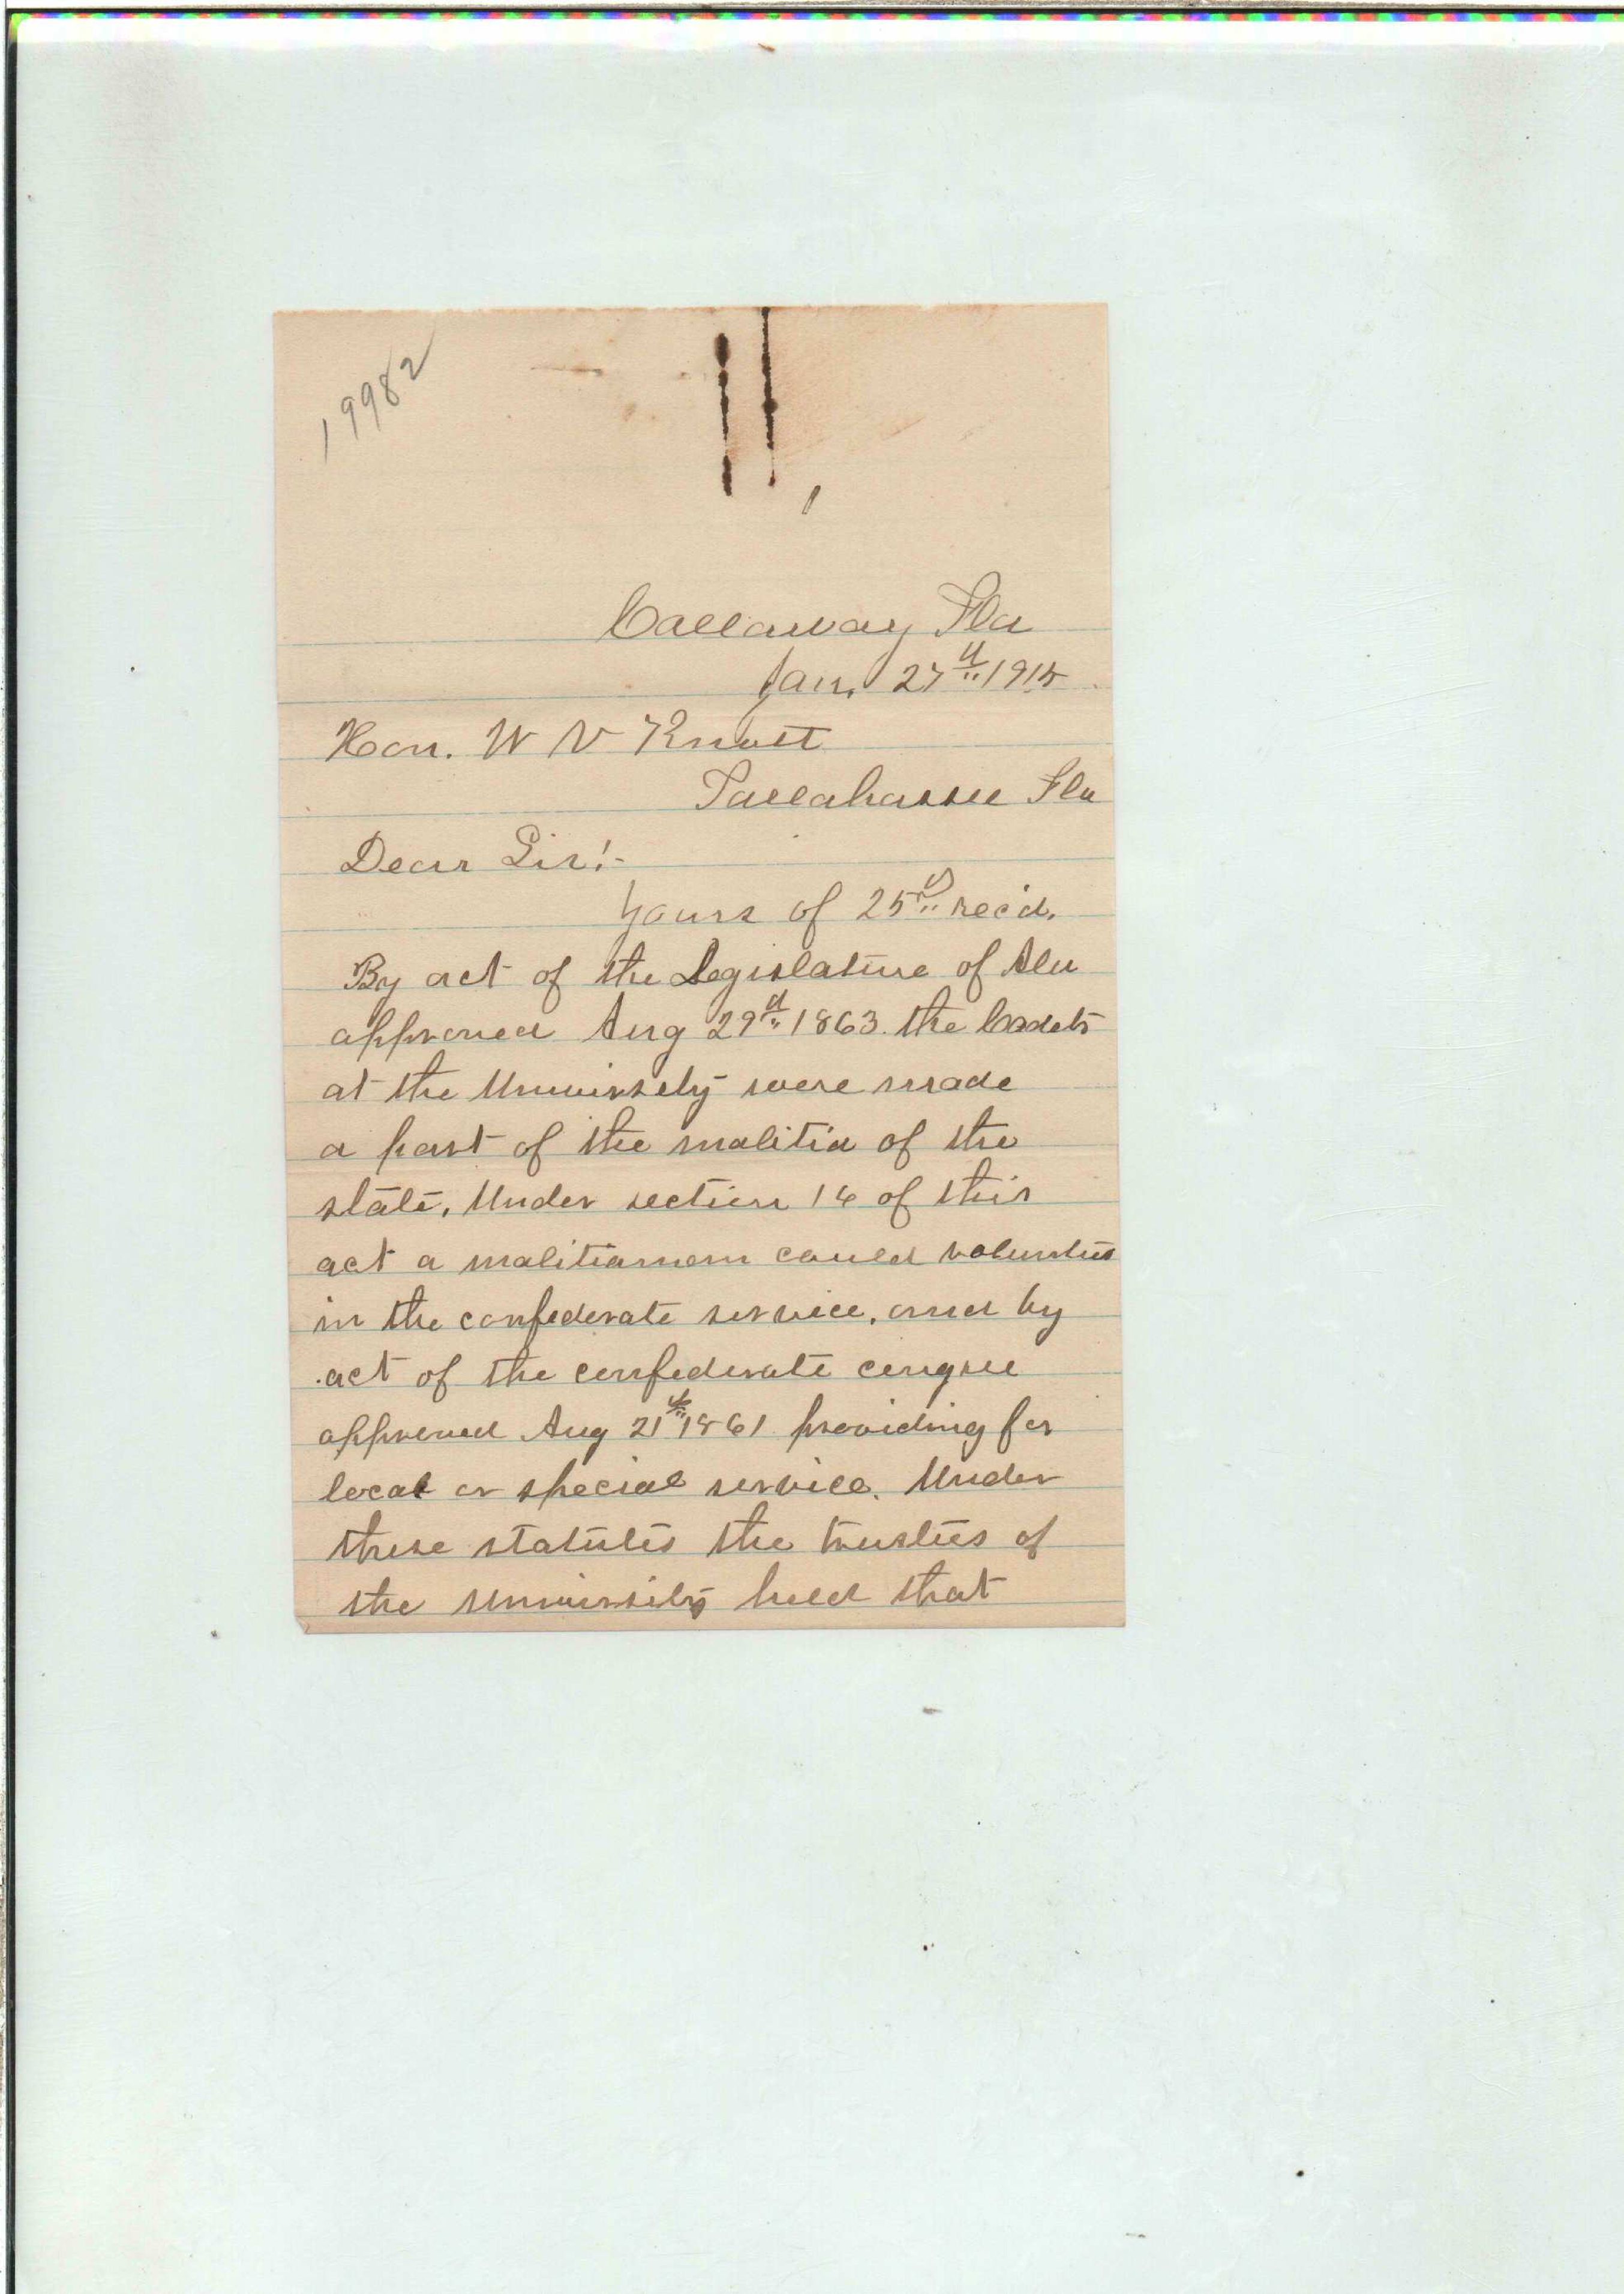 19982
Callaway Fla
Jan. 27th 1915
Hon. W V Knott
Tallahassee Fla
Dear Sir:-
Yours of 25th rec'd.
By act of the Legislature of Ala
approved Aug 29th 1863 the Cadets
at the University were made
a part of the malitia of the
state. Under section 16 of this
act a malitiaman could volunteer
in the confederate service, and by
act of the confederate congree
approved Aug 21st 1861 providing for
local or special service. Under
these statutes the trustees of
the University held that